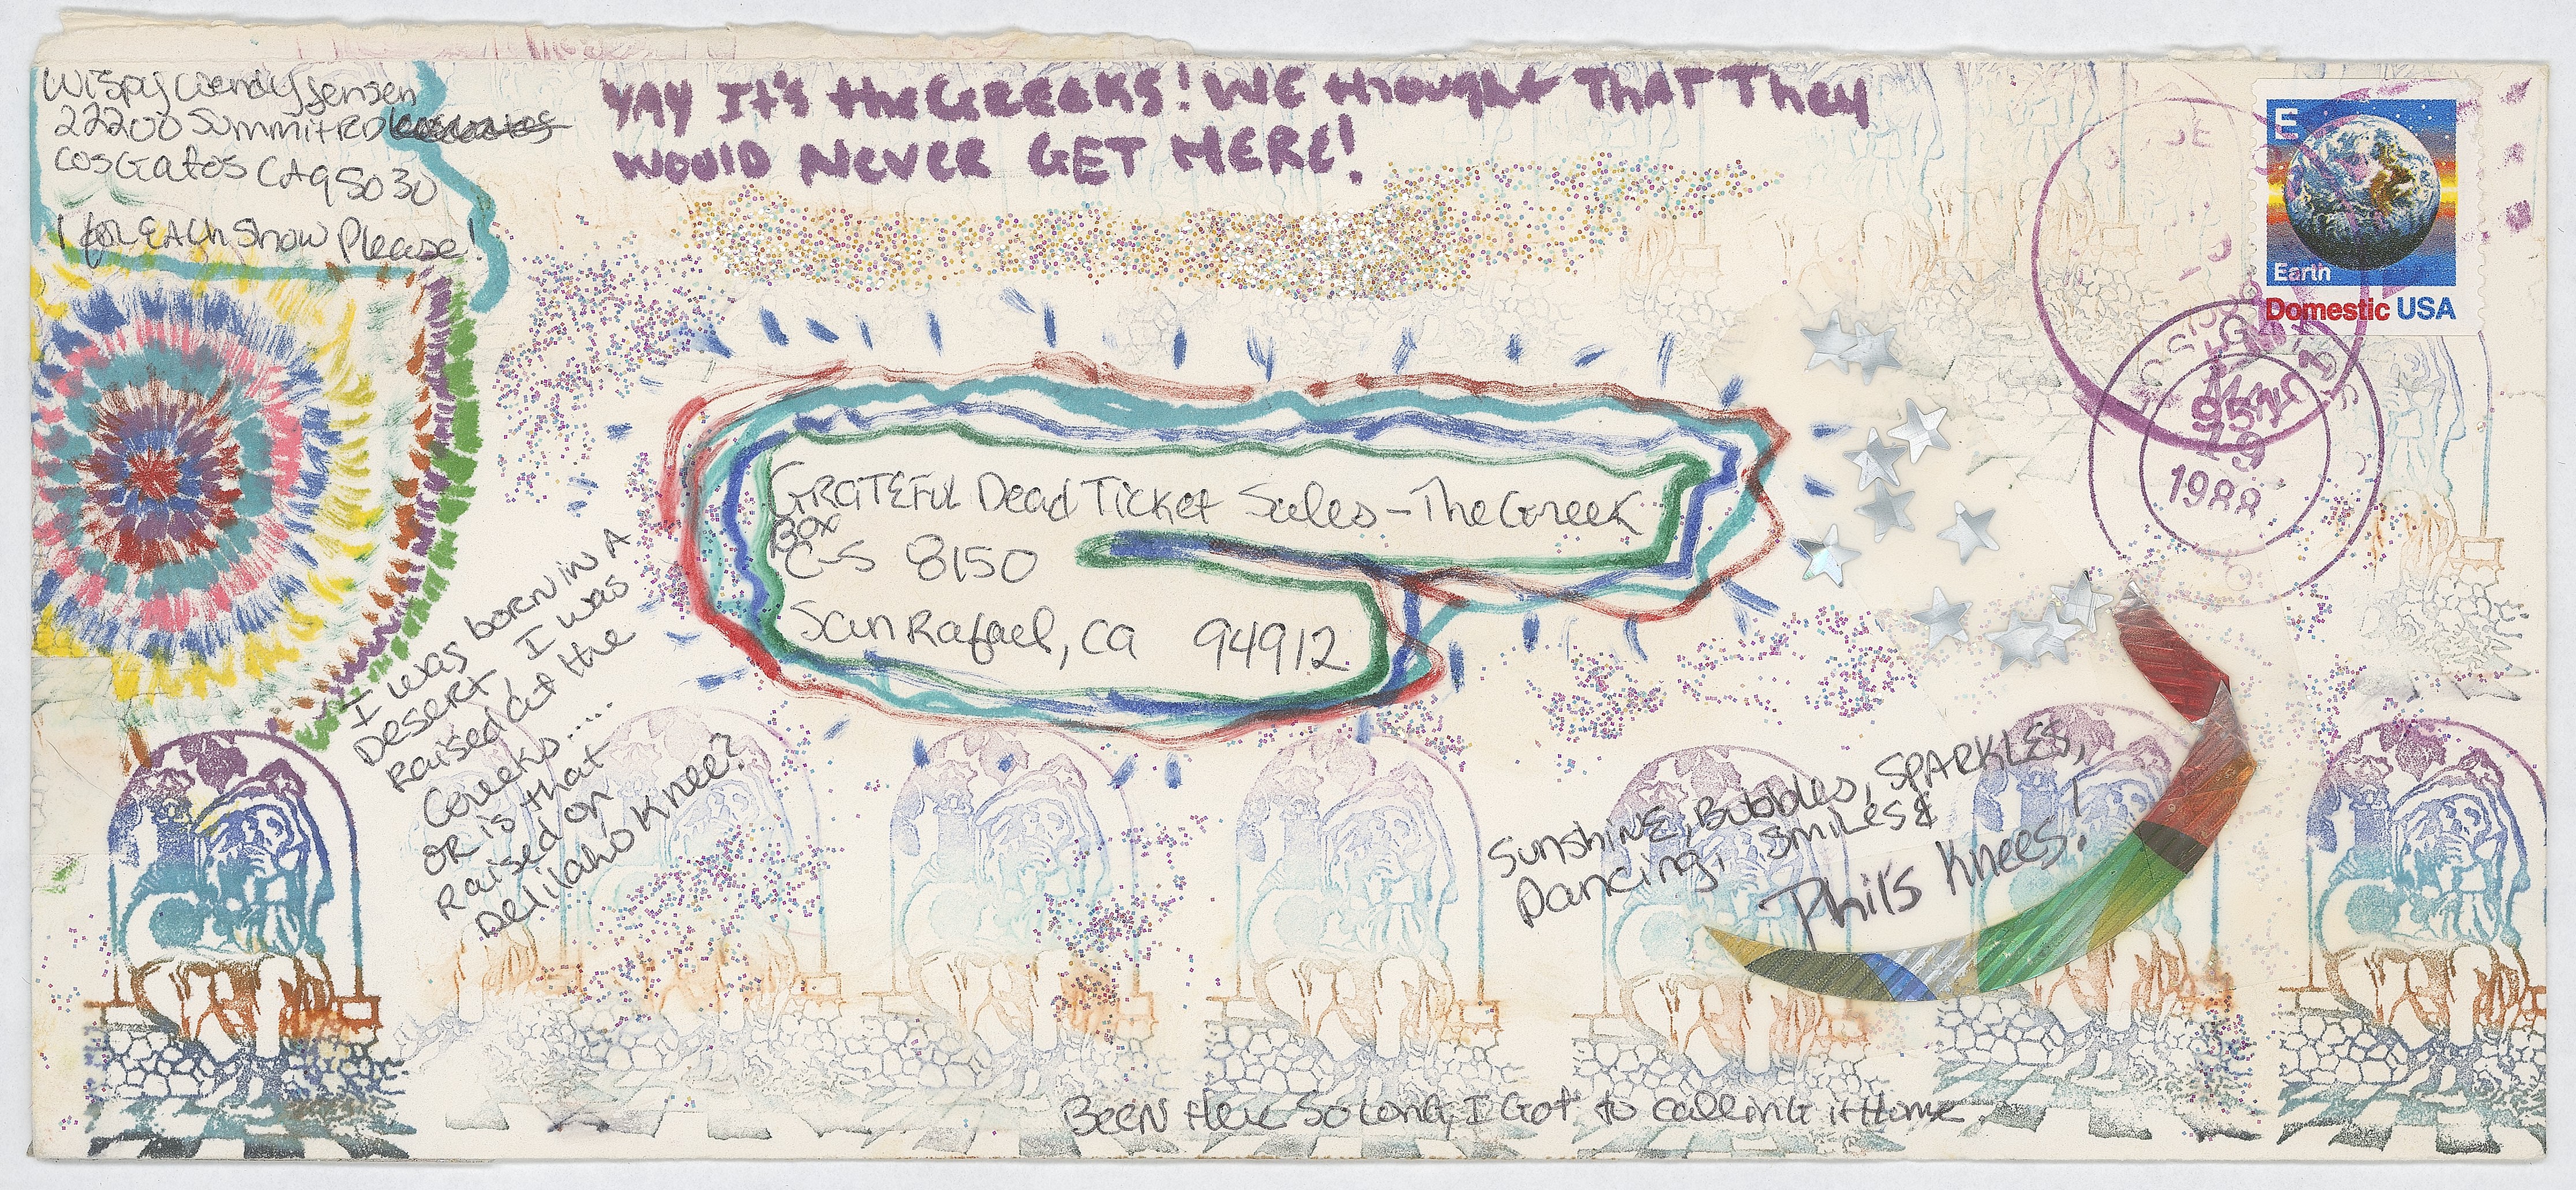 Wispy Wendy Jensen
22200 Summit Rd
Los Gatos CA 95030
1 for EACH Show Please!
YAY It's the GREEKS! WE thought THAT They
WOULD NEVER GET HERE!
E
Earth
Domestic USA
MAY
19
1988
GRATEFUL Dead Ticket Sales - The Greek
Box
C-S 8150
San Rafael, CA 94912
I was born in A
Desert, I was
Raised at the
Greeks.....
OR is that
Raised on
Delilahs Knee?
Sunshine, Bubbles, SPARKLES,
Dancing, Smiles &
Phil's Knees!
BEEN Here So Long, I Got to Calling it Home